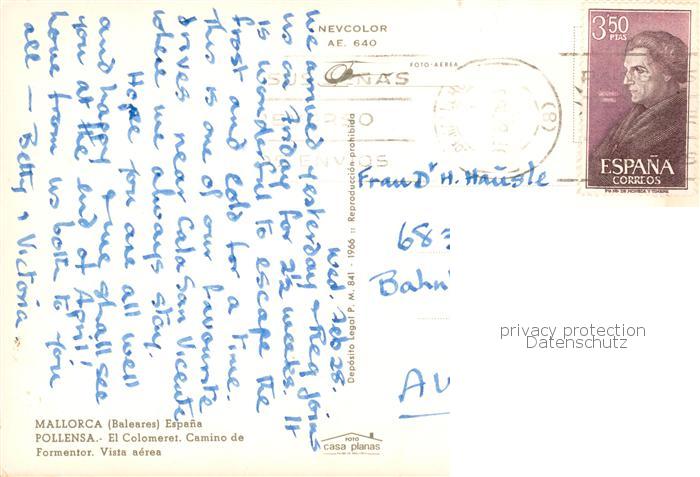 NEVCOLOR
AE. 640
FOTO-AEREA
Wed. Feb 28.
We arrived yesterday & Reg joins
us on Friday for 2½ weeks. It
is wonderful to escape the
frost and cold for a time.
This is one of our favourite
drives near Cala San Vicente
where we always stay.
Hope you are all well
and happy & we shall see
you at the end of April!
Love from us both to you
all — Betty & Victoria
Depósito Legal P. M. 841 - 1966 :: Reproducción prohibida
ENVIOS
(8)
3,50
PTAS
ESPAÑA
CORREOS
Frau Dr H. Häusle
683
Bahn
AU
privacy protection
Datenschutz
MALLORCA (Baleares) España
POLLENSA.- El Colomeret. Camino de
Formentor. Vista aérea
FOTO
casa planas